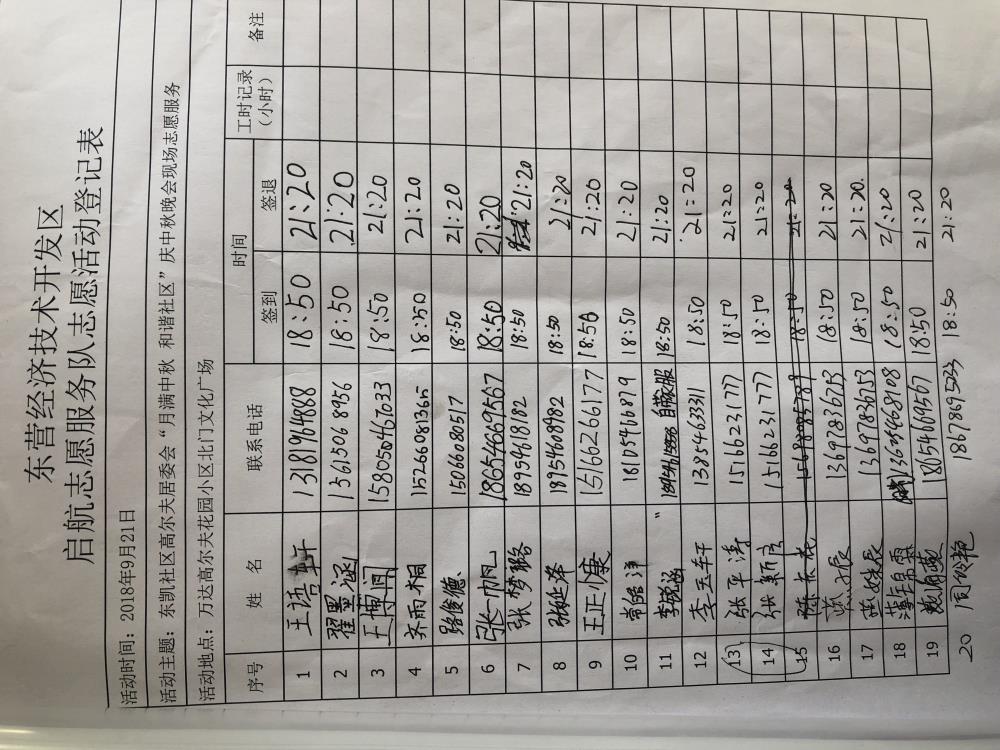 东营经济技术开发区
启航志愿服务队志愿活动登记表
活动时间：2018年9月21日
活动主题：东凯社区高尔夫居委会“月满中秋 和谐社区”庆中秋晚会现场志愿服务
活动地点：万达高尔夫花园小区北门文化广场
序号 姓 名 联系电话 时间 工时记录（小时） 备注
签到 签退
1 王语轩 13181964888 18:50 21:20
2 翟墨涵 15615068956 18:50 21:20
3 王博润 15805467633 18:50 21:20
4 齐雨桐 15266081365 18:50 21:20
5 骆俊德 15066080517 18:50 21:20
6 张一帆 18654669567 18:50 21:20
7 张梦璐 189954618182 18:50 21:20
8 张延泽 18954608982 18:50 21:20
9 王正康 15166266177 18:50 21:20
10 常皓 18:50 21:20
11 李锐涵 18:50 21:20
12 李玉轩 13854633311 18:50 21:20
13 张平涛 15166231777 18:50 21:20
14 张新 15166231777 18:50 21:20
15 18:50 21:20
16 辰 13697836753 18:50 21:20
17 辰 13697836753 18:50 21:20
18 霖 13635468108 18:50 21:20
19 18154609567 18:50 21:20
20 周 18678695233 18:50 21:20